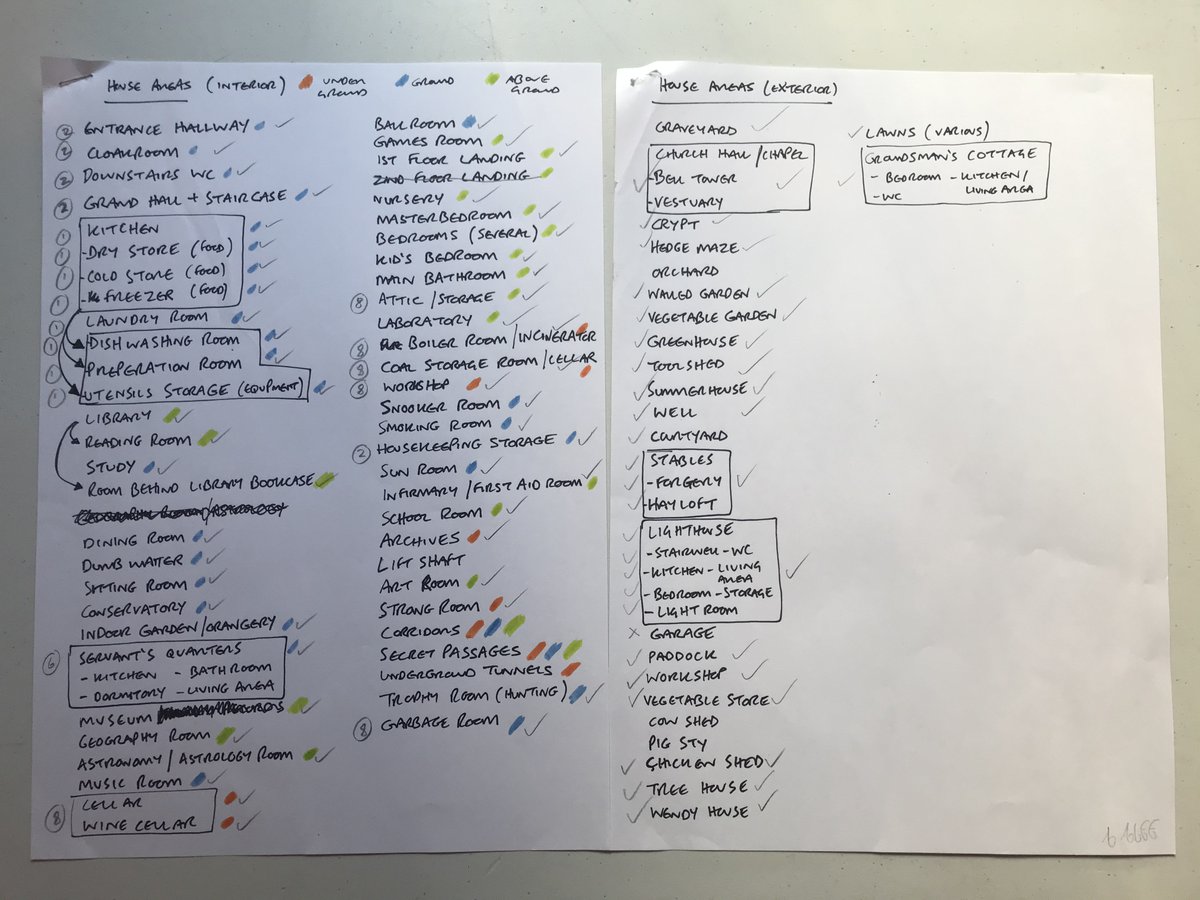 HOUSE AREAS (INTERIOR) UNDER GROUND GROUND ABOVE GROUND
2 ENTRANCE HALLWAY
2 CLOAKROOM
2 DOWNSTAIRS WC
2 GRAND HALL + STAIRCASE
1 KITCHEN
1 - DRY STORE (FOOD)
1 - COLD STORE (FOOD)
1 - FREEZER (FOOD)
1 LAUNDRY ROOM
1 DISHWASHING ROOM
1 PREPERATION ROOM
1 UTENSILS STORAGE (EQUPMENT)
LIBRARY
READING ROOM
STUDY
ROOM BEHIND LIBRARY BOOKCASE
DINING ROOM
DUMB WAITER
SITTING ROOM
CONSERVATORY
INDOOR GARDEN/ORANGERY
6 SERVANT'S QUARTERS
- KITCHEN - BATHROOM
- DORMITORY - LIVING AREA
MUSEUM
GEOGRAPHY ROOM
ASTRONOMY/ASTROLOGY ROOM
MUSIC ROOM
8 CELLAR
WINE CELLAR
BALLROOM
GAMES ROOM
1ST FLOOR LANDING
2ND FLOOR LANDING
NURSERY
MASTER BEDROOM
BEDROOMS (SEVERAL)
KID'S BEDROOM
MAIN BATHROOM
8 ATTIC/STORAGE
LABORATORY
8 BOILER ROOM/INCINERATOR
8 COAL STORAGE ROOM/CELLAR
8 WORKSHOP
SNOOKER ROOM
SMOKING ROOM
2 HOUSEKEEPING STORAGE
SUN ROOM
INFIRMARY/FIRST AID ROOM
SCHOOL ROOM
ARCHIVES
LIFT SHAFT
ART ROOM
STRONG ROOM
CORRIDORS
SECRET PASSAGES
UNDERGROUND TUNNELS
TROPHY ROOM (HUNTING)
8 GARBAGE ROOM
HOUSE AREAS (EXTERIOR)
GRAVEYARD
CHURCH HALL/CHAPEL
- BELL TOWER
- VESTUARY
CRYPT
HEDGE MAZE
ORCHARD
WALLED GARDEN
VEGETABLE GARDEN
GREENHOUSE
TOOLSHED
SUMMERHOUSE
WELL
COURTYARD
STABLES
- FORGERY
- HAYLOFT
LIGHTHOUSE
- STAIRWELL - WC
- KITCHEN - LIVING AREA
- BEDROOM - STORAGE
- LIGHT ROOM
GARAGE
PADDOCK
WORKSHOP
VEGETABLE STORE
COW SHED
PIG STY
CHICKEN SHED
TREE HOUSE
WENDY HOUSE
LAWNS (VARIOUS)
GROUNDSMAN'S COTTAGE
- BEDROOM - KITCHEN/
LIVING AREA
- WC